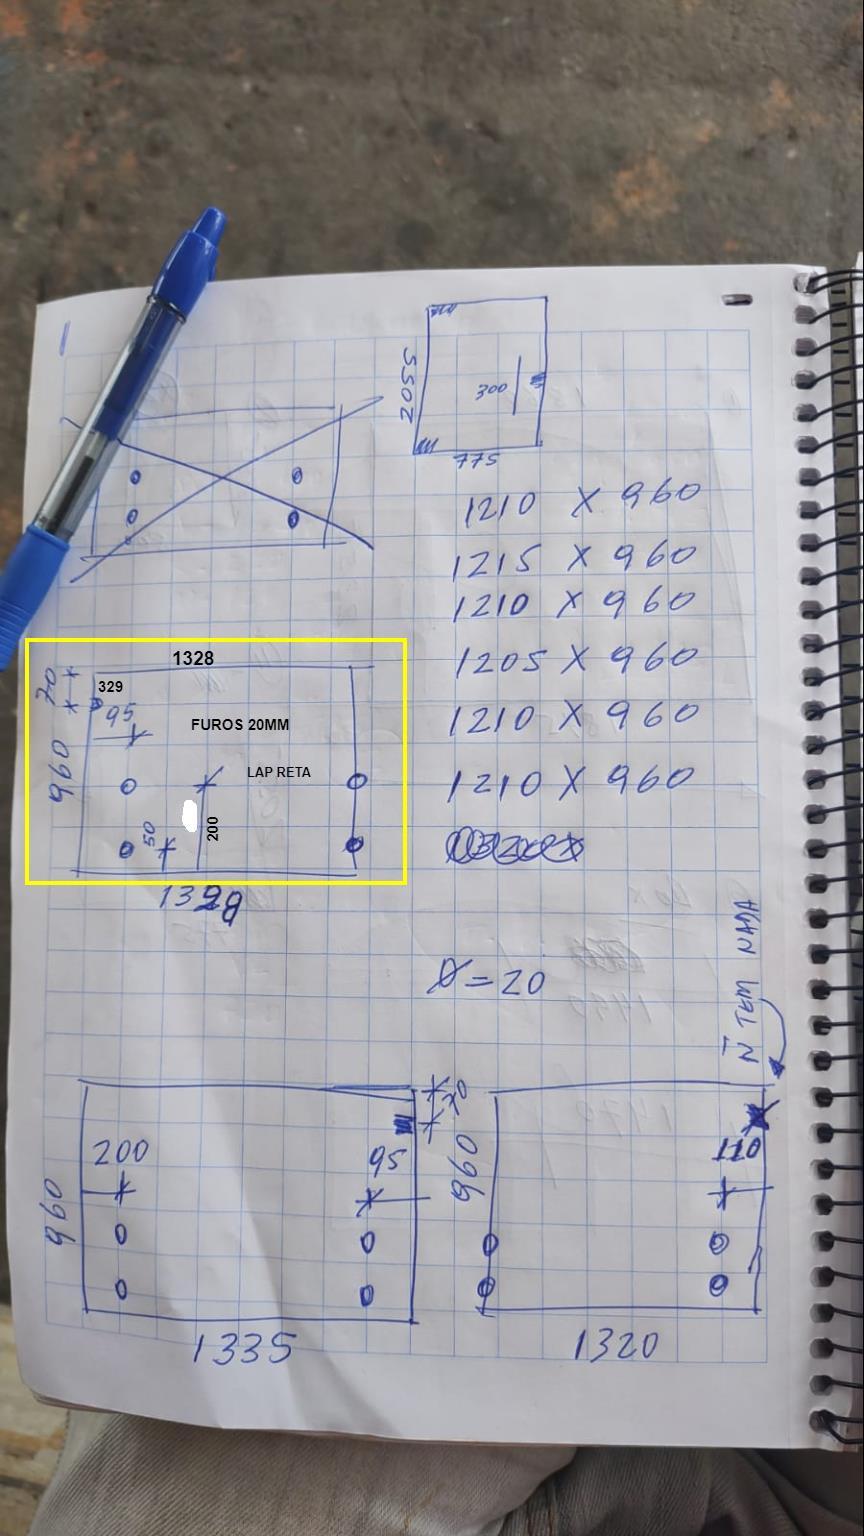 2055
300
775
1210 X 960
1215 X 960
1210 X 960
1205 X 960
1210 X 960
1210 X 960
1328
70
329
95
FUROS 20MM
960
LAP RETA
50
200
Ø = 20
Ñ TEM NADA
70
200
95
960
960
110
1335
1320